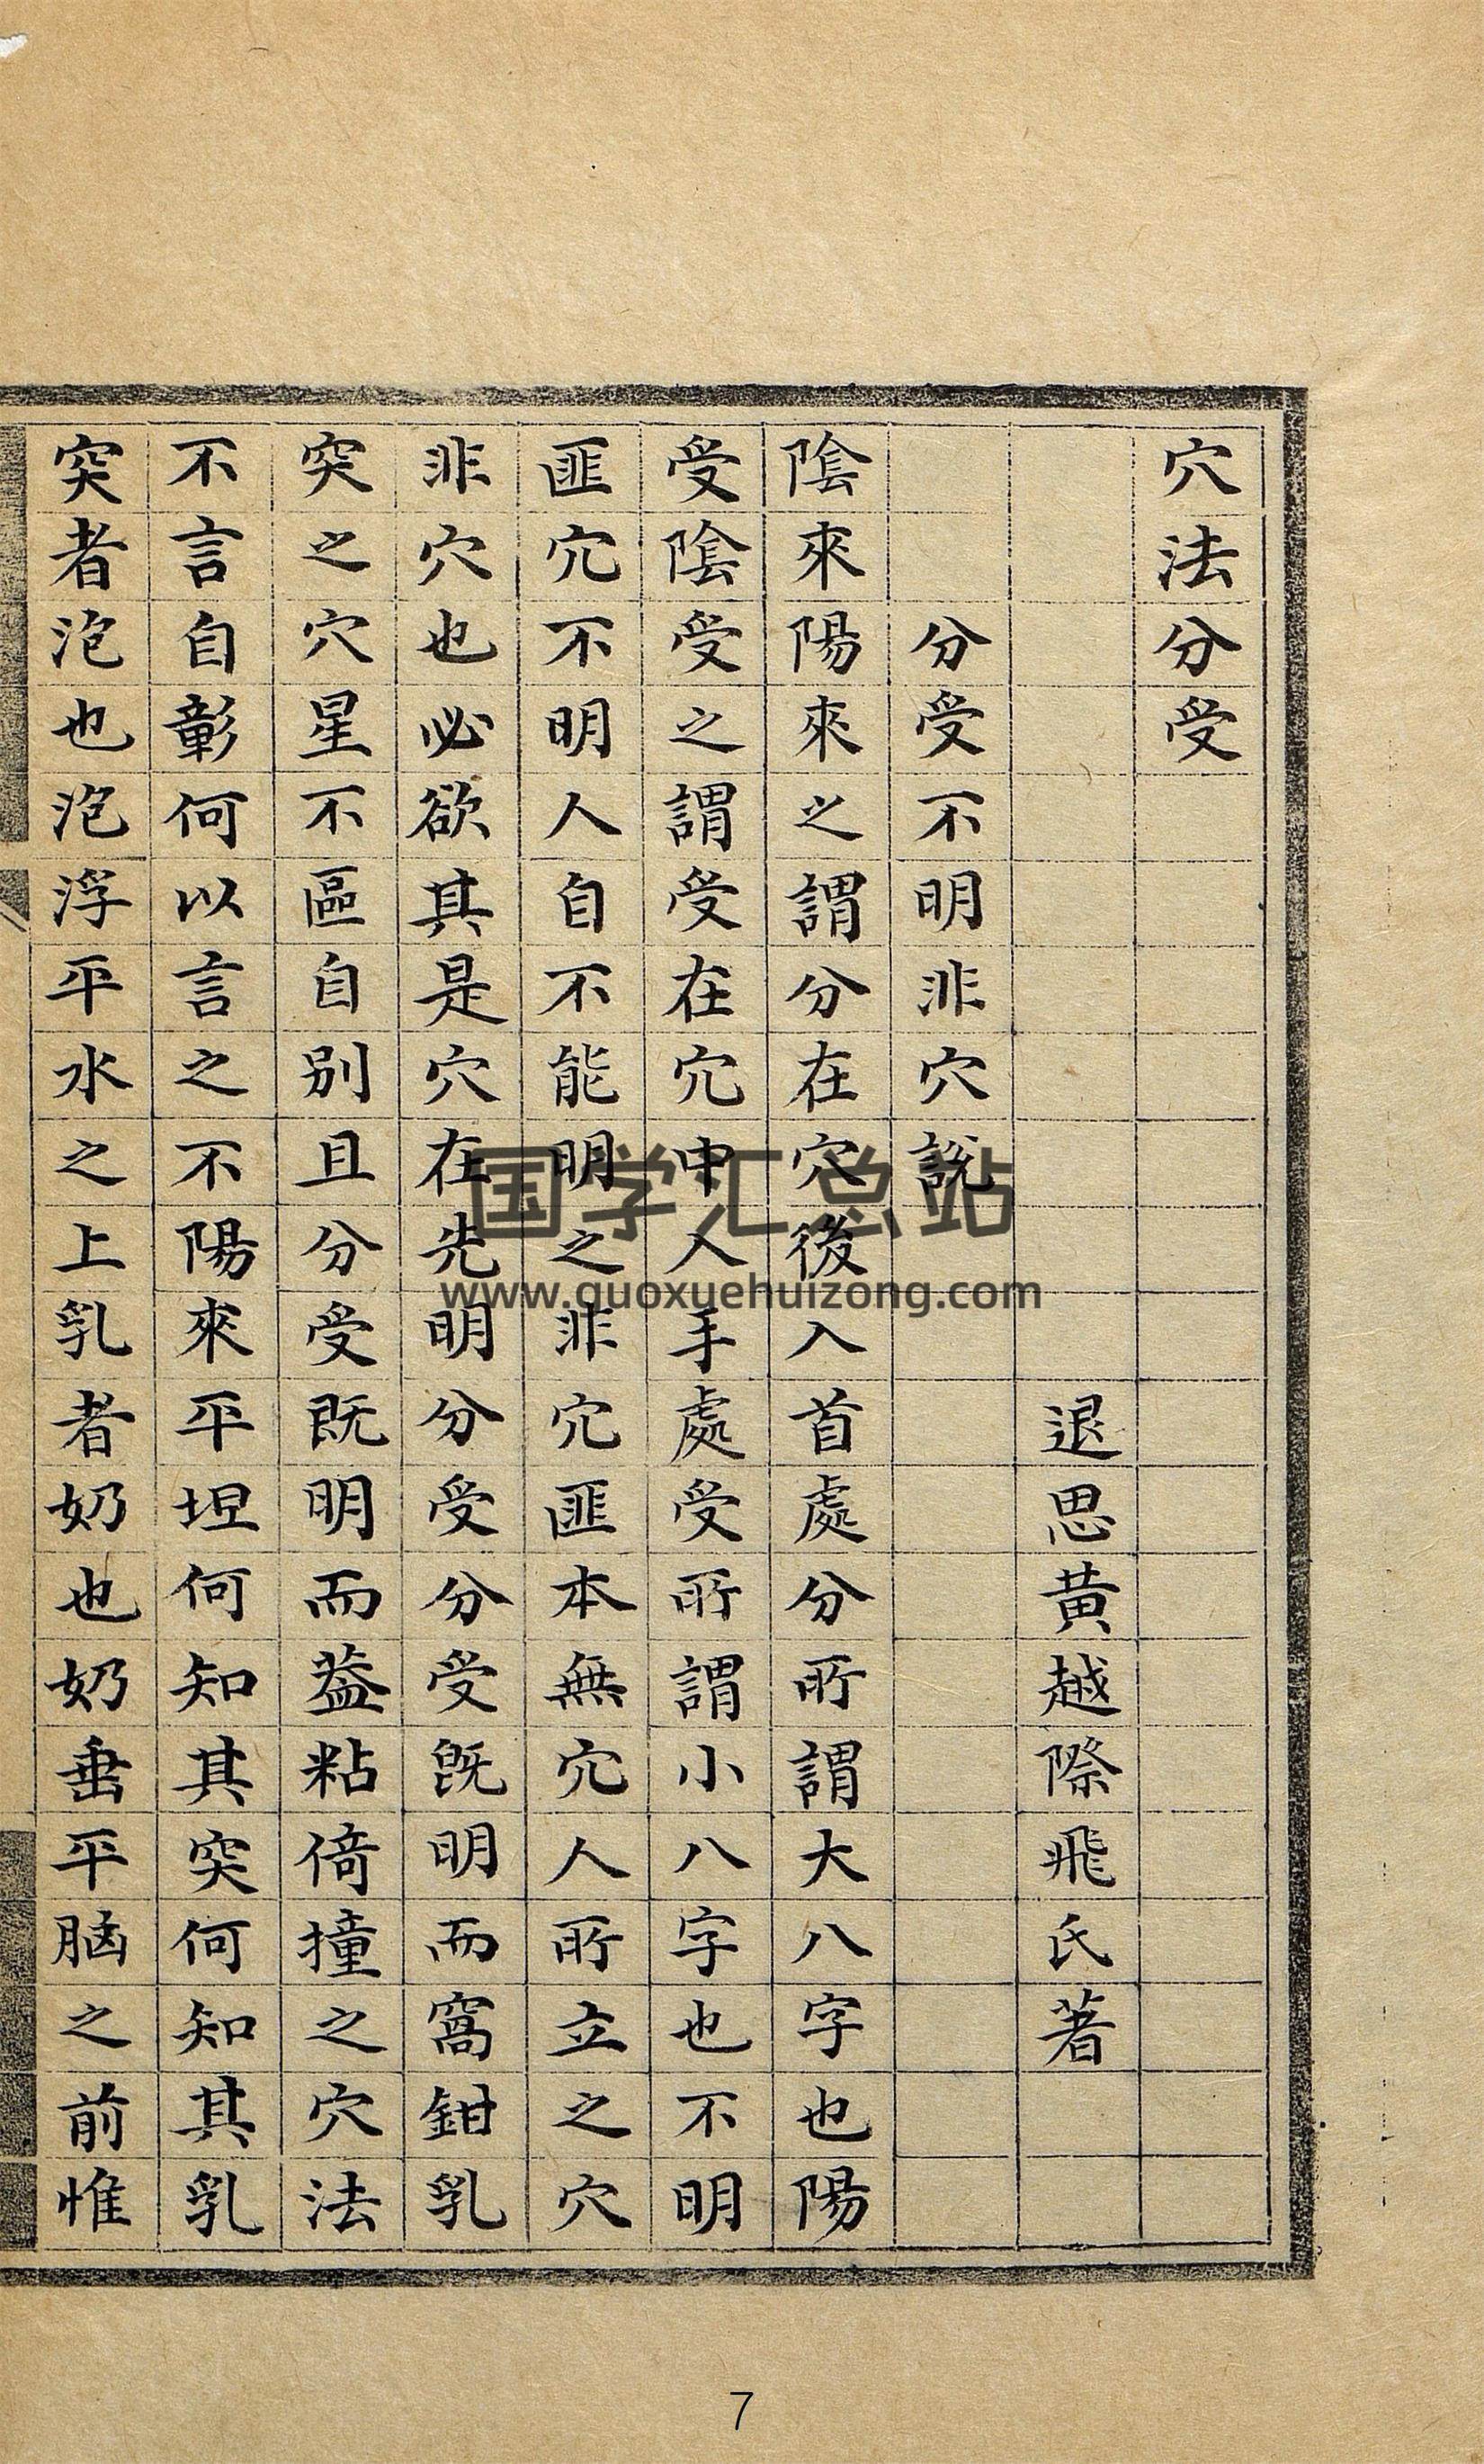 穴法分受
退思黃越際飛氏著
分受不明非穴說
陰來陽來之謂分在穴後入首處分所謂大八字也陽
受陰受之謂受在穴中入手處受所謂小八字也不明
匪穴不明人自不能明之非穴匪本無穴人所立之穴
非穴也必欲其是穴在先明分受分受既明而窩鉗乳
突之穴星不區自別且分受既明而葢粘倚撞之穴法
不言自彰何以言之不陽來平坦何知其突何知其乳
突者泡也泡浮平水之上乳者奶也奶垂平脑之前惟
国学汇总站
www.guoxuehuizong.com
7